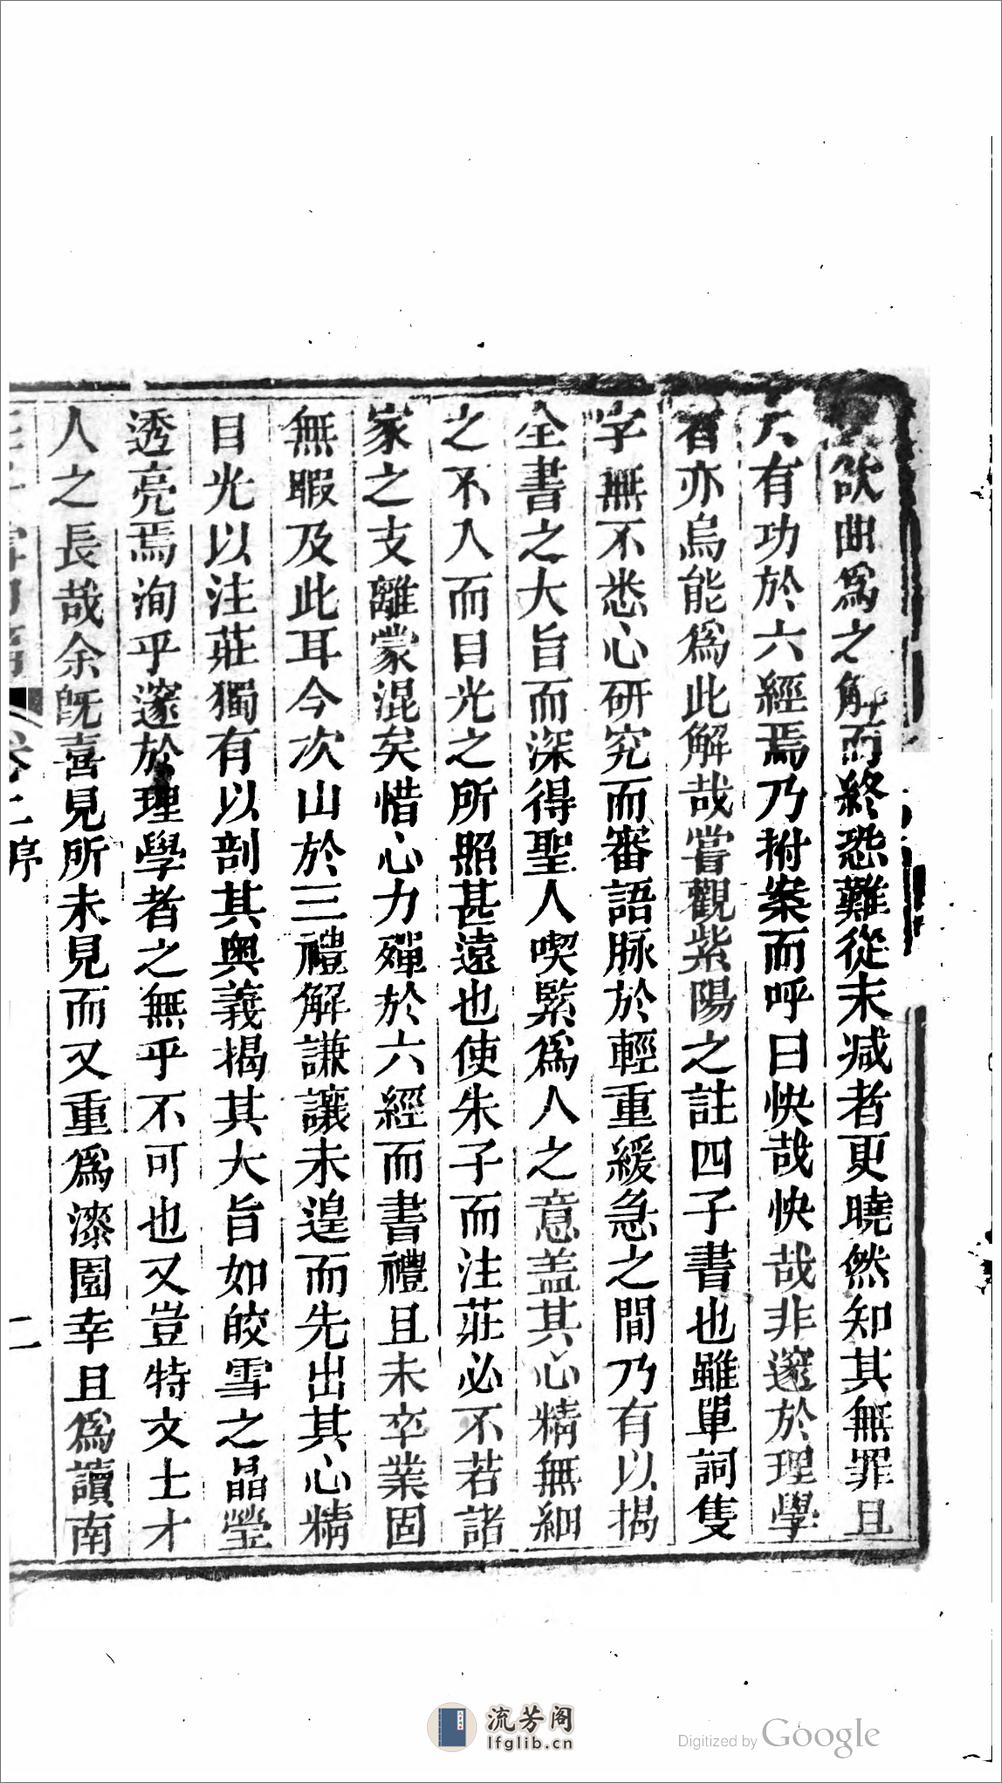 欲曲爲之解而終恐難從末减者更曉然知其無罪且
大有功於六經焉乃拊案而呼曰快哉快哉非邃於理學
者亦烏能爲此解哉嘗觀紫陽之註四子書也雖單詞隻
字無不悉心研究而審語脉於輕重緩急之間乃有以揭
全書之大旨而深得聖人喫緊爲人之意盖其心精無細
之不入而目光之所照甚遠也使朱子而注莊必不若諸
家之支離蒙混矣惜心力殫於六經而書禮且未卒業固
無暇及此耳今次山於三禮解謙讓未遑而先出其心精
目光以注莊獨有以剖其奥義揭其大旨如皎雪之晶瑩
透亮焉洵乎邃於理學者之無乎不可也又豈特文士才
人之長哉余旣喜見所未見而又重爲漆園幸且爲讀南
序 二
流芳阁
lfglib.cn
Digitized by Google